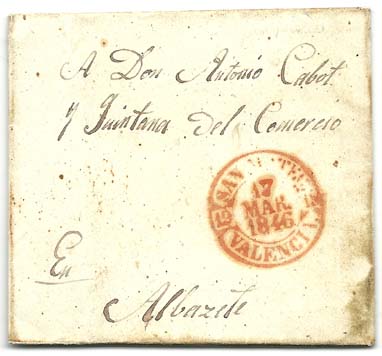 A Don Antonio Cabot
y Quintana del Comercio
SAN MATEO
17
MAR.
1846
VALENCIA
En
Albazete